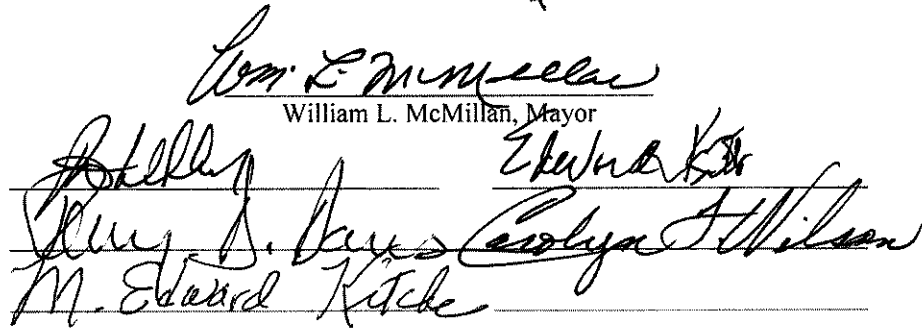 Wm. L. McMillan
William L. McMillan, Mayor
Edward
D. Davis Carolyn F Wilson
M. Edward Kitche